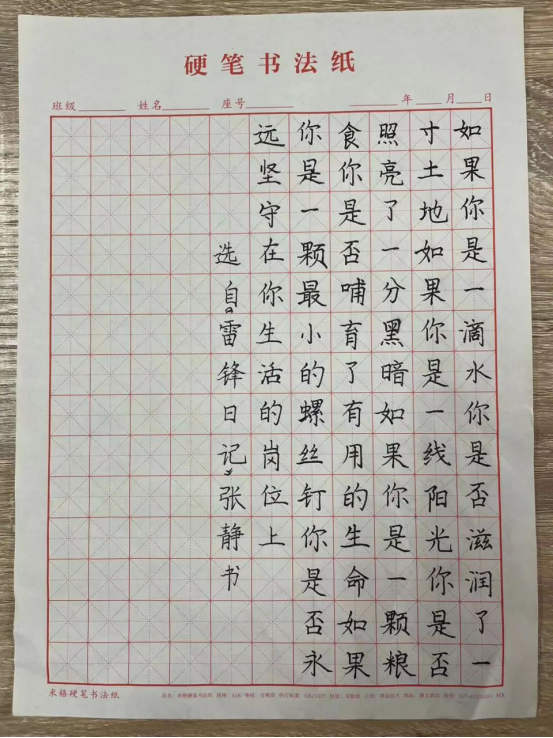 硬笔书法纸
班级 姓名 座号 年 月 日
如果你是一滴水你是否滋润了一
寸土地如果你是一线阳光你是否
照亮了一分黑暗如果你是一颗粮
食你是否哺育了有用的生命如果
你是一颗最小的螺丝钉你是否永
远坚守在你生活的岗位上
选自雷锋日记张静书
米格硬笔书法纸